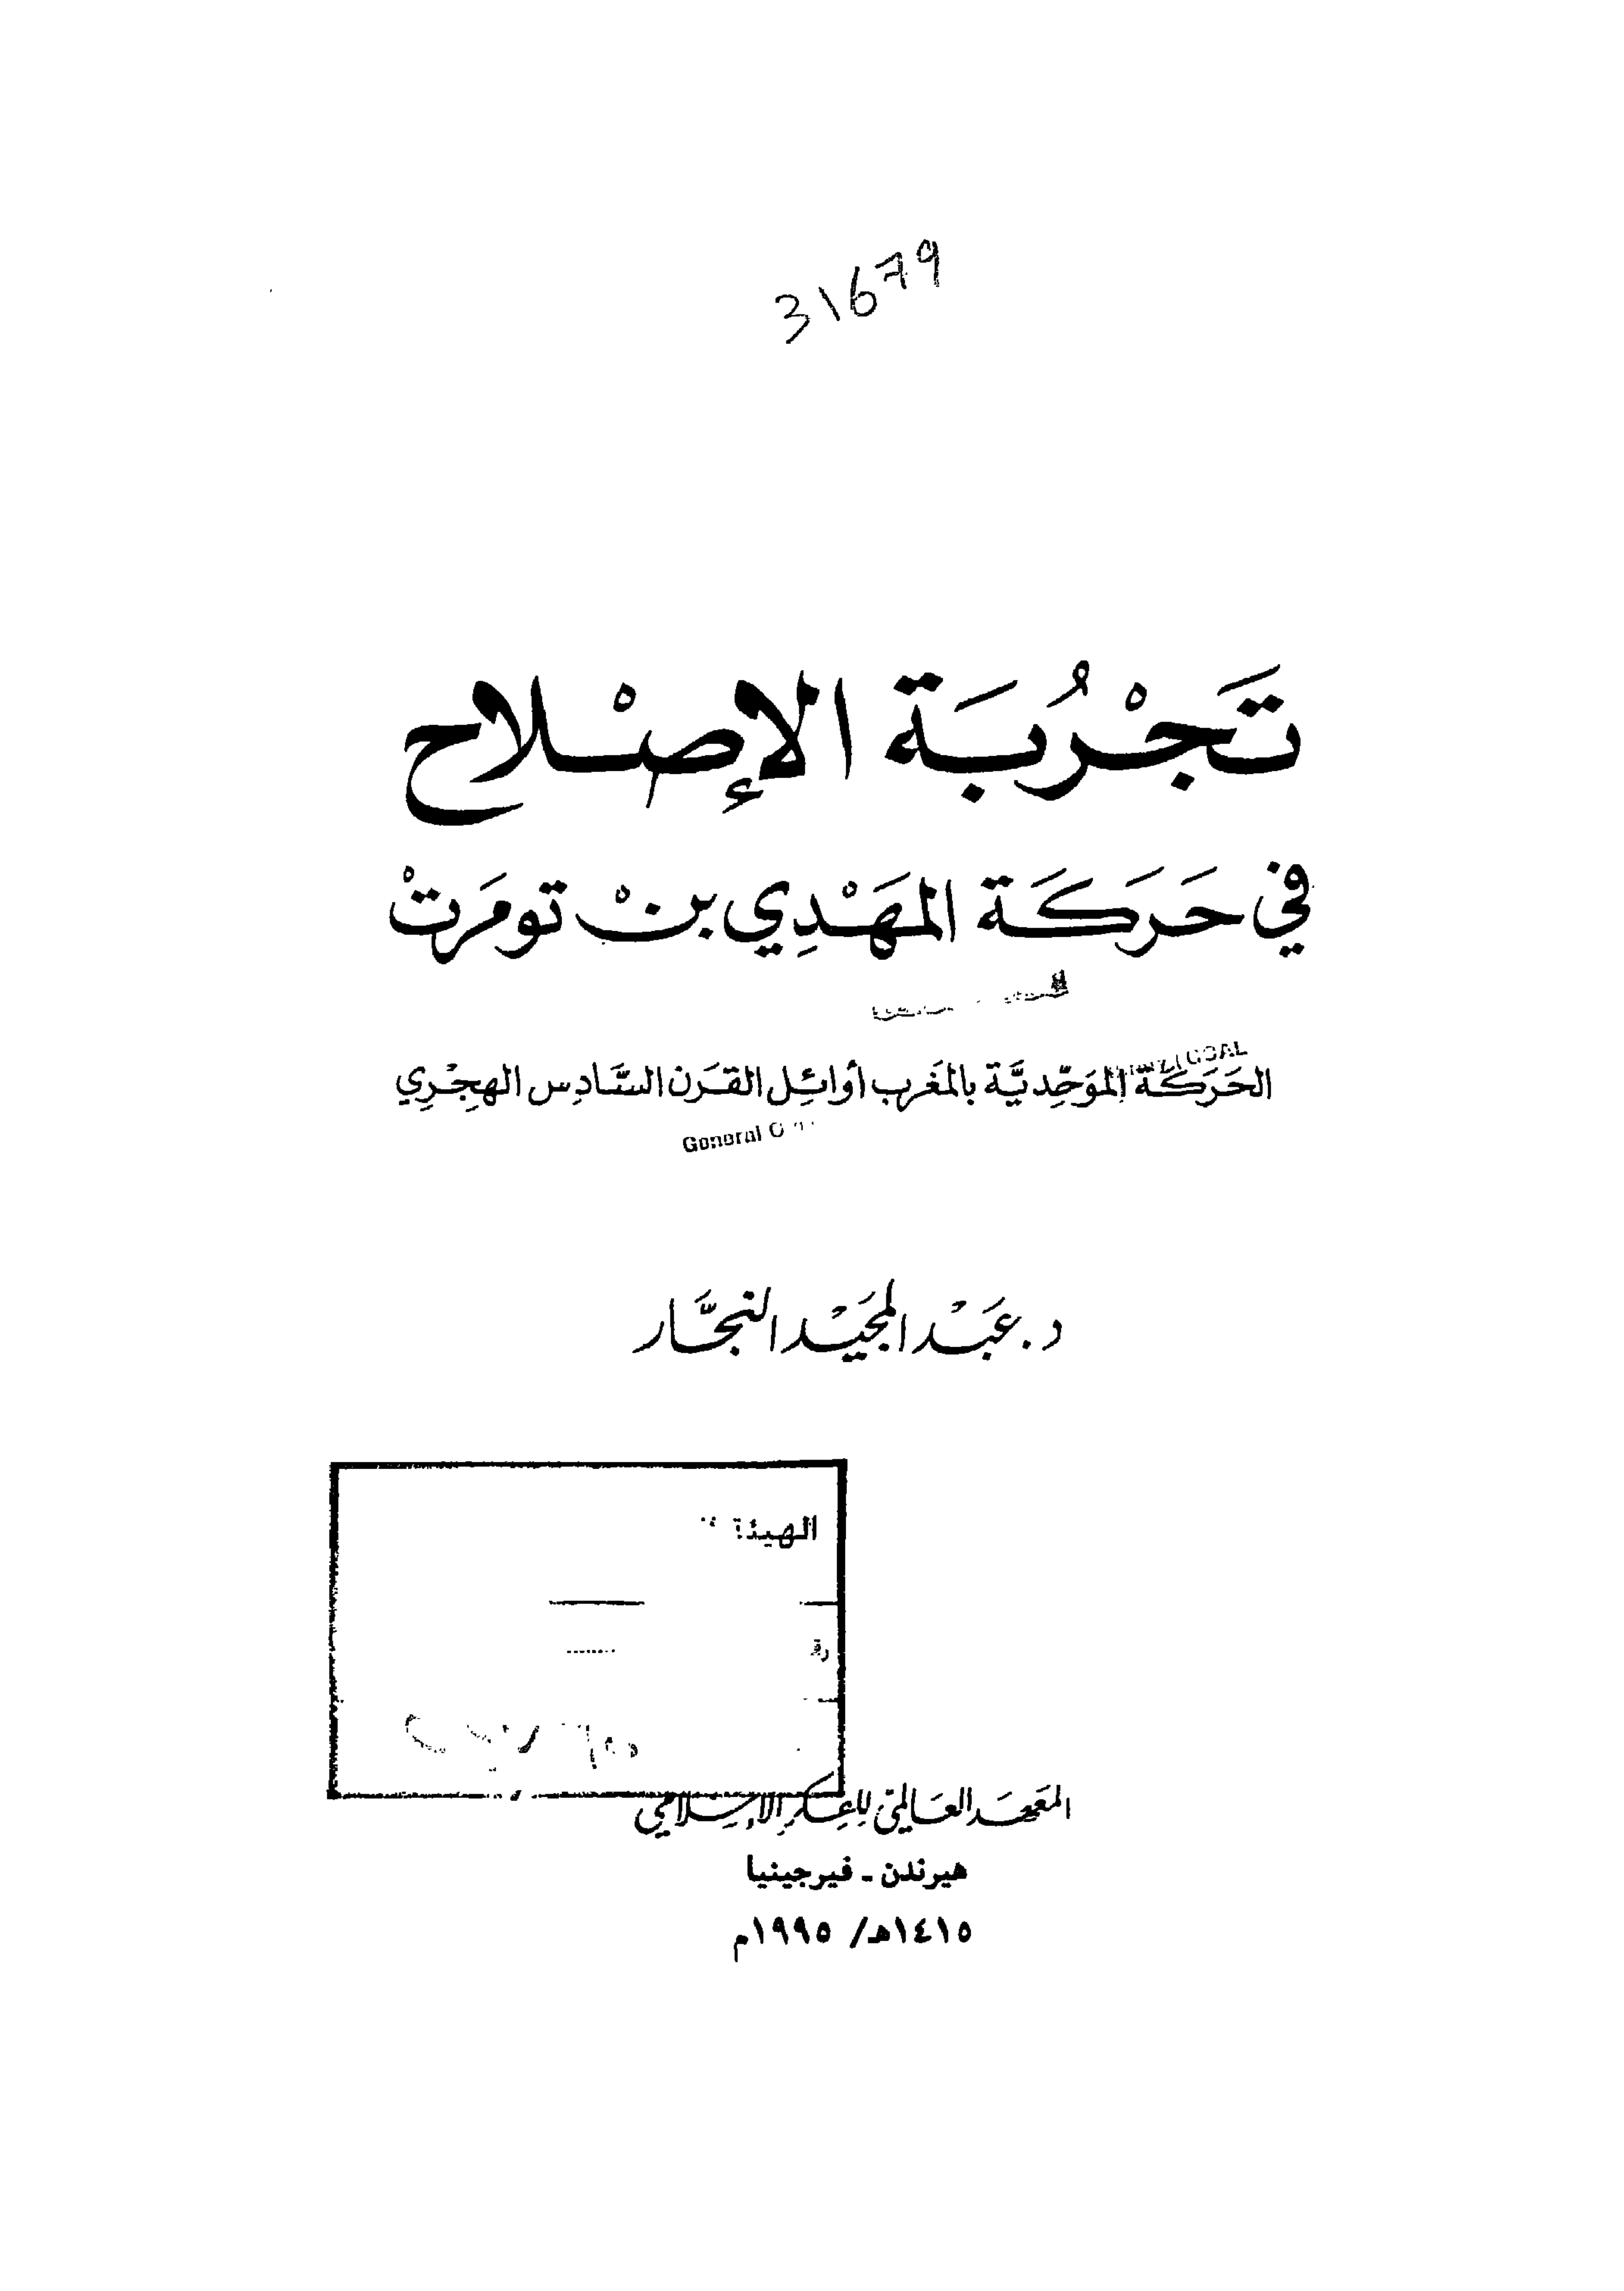 31679
تَجْرُبَة الإصْلاح
في حَرَكَة المهْدِي بنْ تومَرتْ
الحَرَكَة الموَحِّديَّة بالمَغرب أوائِل القَرن السَّادِس الهِجْرِي
General
د. عَبْد المجَيْد النجَّار
الهيئة
المعَهَد العَالمي للفكر الإسلامي
هيرندن - فيرجينيا
١٤١٥هـ/ ١٩٩٥م